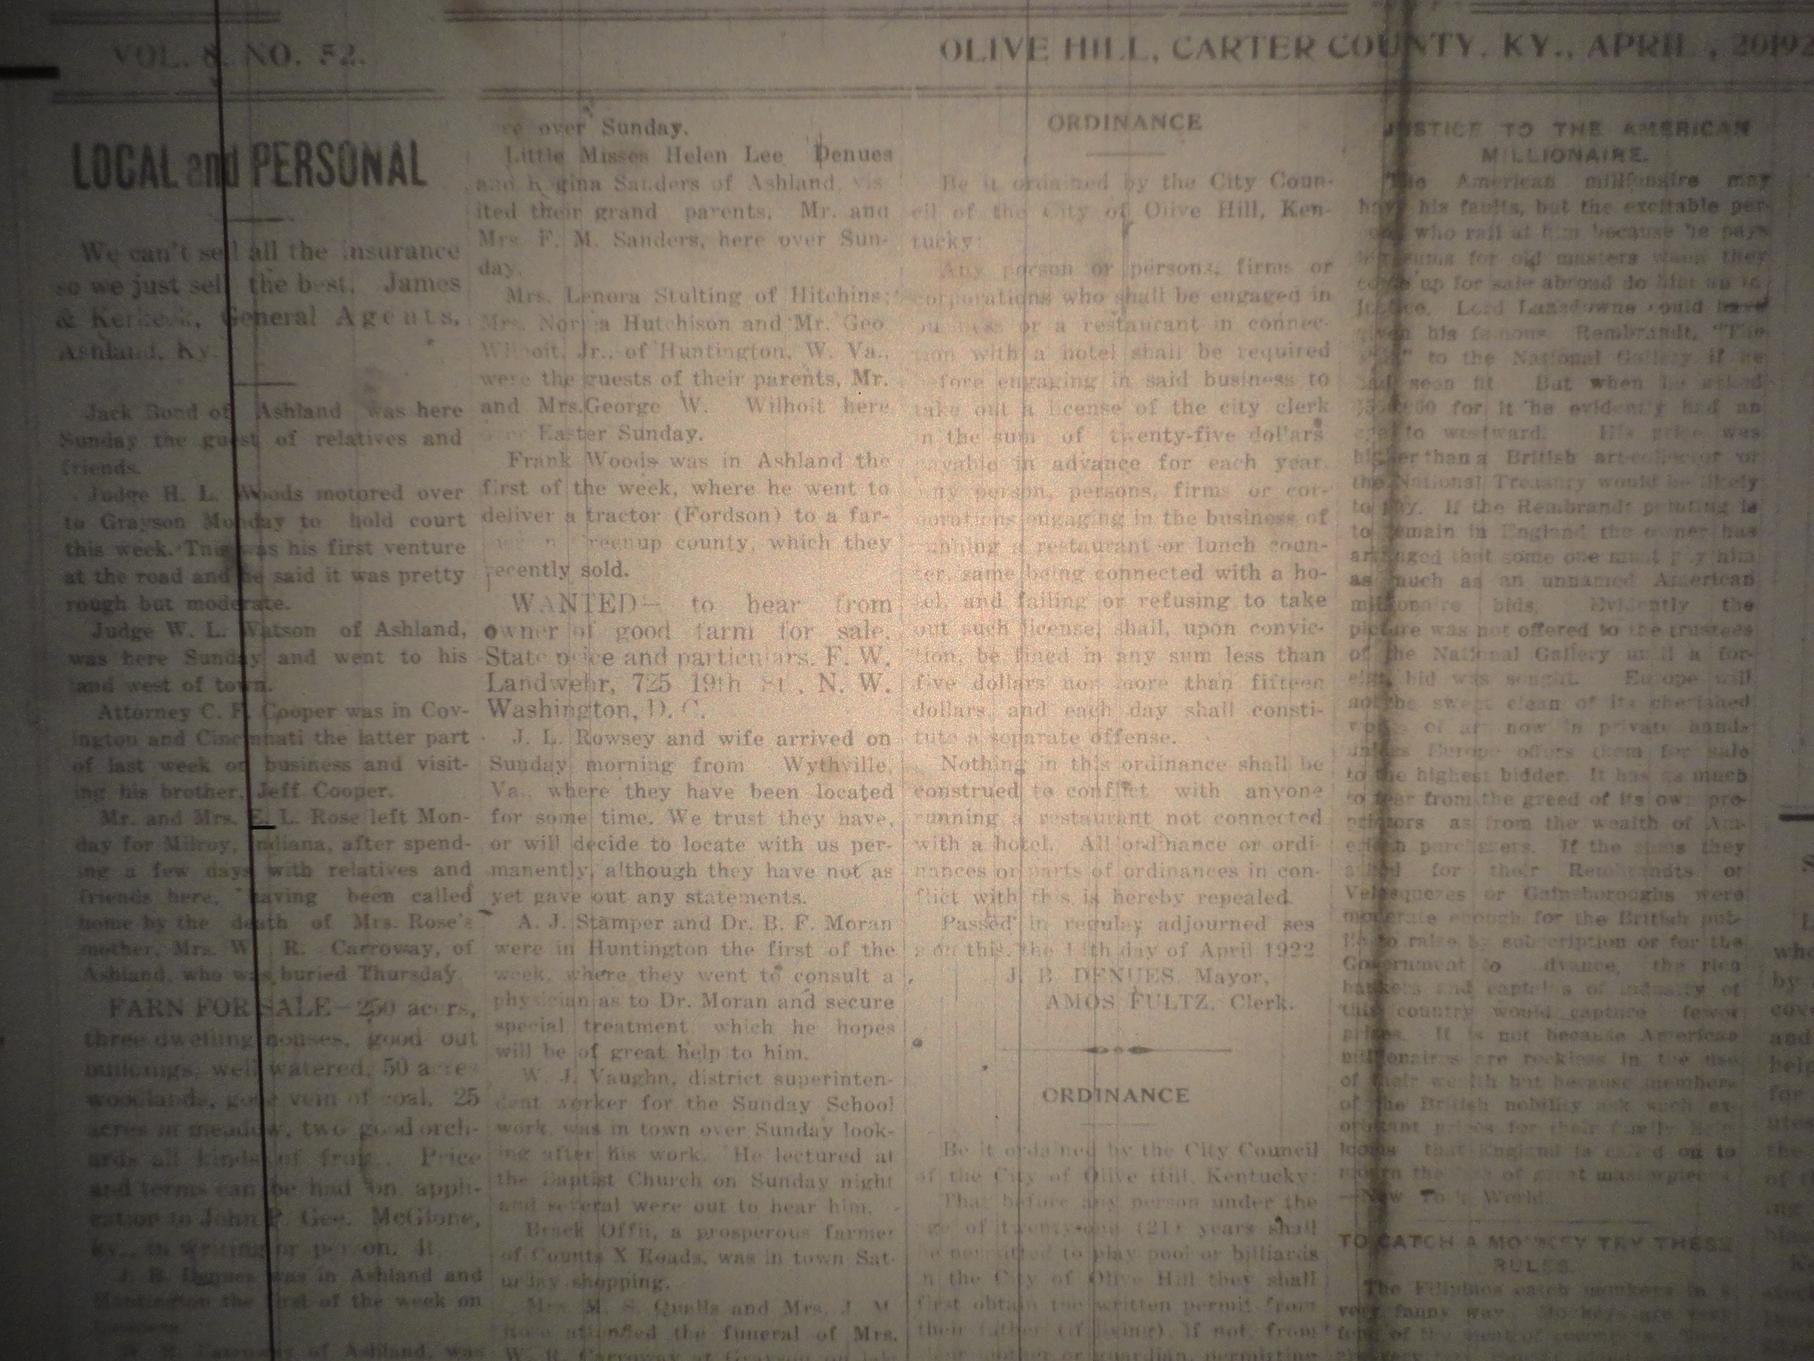 VOL. 8. NO. 52.
OLIVE HILL, CARTER COUNTY, KY., APRIL , 20 192
LOCAL and PERSONAL
We can't sell all the insurance
so we just sell the best. James
& General Agents,
Ashland, Ky.
Jack Bond of Ashland was here
Sunday the guest of relatives and
friends.
Judge H. L. Woods motored over
to Grayson Monday to hold court
this week. This was his first venture
at the road and he said it was pretty
rough but moderate.
Judge W. L. Watson of Ashland,
was here Sunday and went to his
land west of town.
Attorney C. F. Cooper was in Cov-
ington and Cincinnati the latter part
of last week on business and visit-
ing his brother, Jeff Cooper.
Mr. and Mrs. E. L. Rose left Mon-
day for Milroy, Indiana, after spend-
ing a few days with relatives and
friends here, having been called
home by the death of Mrs. Rose's
mother, Mrs. W. R. Carroway, of
Ashland, who was buried Thursday.
FARN FOR SALE—250 acers,
three dwelling houses, good out
buildings, well watered, 50 acres
woodlands, good vein of coal, 25
acres in meadow, two good orch-
ards all kinds of fruit. Price
and terms can be had on appli-
cation to John P. Gee, McGlone,
Ky., in writing or person. 4t
J. B. Denues was in Ashland and
Huntington the first of the week on
business.
of Ashland, was
re over Sunday.
Little Misses Helen Lee Denues
and Regina Sanders of Ashland, vis
ited their grand parents, Mr. and
Mrs. F. M. Sanders, here over Sun-
day.
Mrs. Lenora Stulting of Hitchins;
Mrs. Norma Hutchison and Mr. Geo
Wilhoit, Jr., of Huntington, W. Va.,
were the guests of their parents, Mr.
and Mrs.George W. Wilhoit here
over Easter Sunday.
Frank Woods was in Ashland the
first of the week, where he went to
deliver a tractor (Fordson) to a far-
mer in Greenup county, which they
recently sold.
WANTED— to hear from
owner of good farm for sale.
State price and particulars. F. W.
Landwehr, 725 19th St., N. W.
Washington, D. C.
J. L. Rowsey and wife arrived on
Sunday morning from Wythville,
Va., where they have been located
for some time. We trust they have,
or will decide to locate with us per-
manently, although they have not as
yet gave out any statements.
A. J. Stamper and Dr. B. F. Moran
were in Huntington the first of the
week, where they went to consult a
physician as to Dr. Moran and secure
special treatment which he hopes
will be of great help to him.
W. J. Vaughn, district superinten-
dent worker for the Sunday School
work, was in town over Sunday look-
ing after his work. He lectured at
the Baptist Church on Sunday night
and several were out to hear him.
Brack Offil, a prosperous farmer
of Counts X Roads, was in town Sat-
urday shopping.
Mrs. M. S. Qualls and Mrs. J. M
Rose attended the funeral of Mrs.
W. R. Carroway at Grayson
ORDINANCE
Be it ordained by the City Coun-
cil of the City of Olive Hill, Ken-
tucky:
Any person or persons, firms or
corporations who shall be engaged in
business or a restaurant in connec-
tion with a hotel shall be required
before engaging in said business to
take out a license of the city clerk
in the sum of twenty-five dollars
payable in advance for each year.
Any person, persons, firms or cor-
porations engaging in the business of
running a restaurant or lunch coun-
ter, same being connected with a ho-
tel, and failing or refusing to take
out such license, shall, upon convic-
tion, be fined in any sum less than
five dollars nor more than fifteen
dollars, and each day shall consti-
tute a separate offense.
Nothing in this ordinance shall be
construed to conflict with anyone
running a restaurant not connected
with a hotel. All ordinance or ordi-
nances or parts of ordinances in con-
flict with this is hereby repealed.
Passed in regular adjourned ses
sion this, the 11th day of April 1922
J. B. DENUES, Mayor,
AMOS FULTZ, Clerk.
ORDINANCE
Be it ordained by the City Council
of the City of Olive Hill, Kentucky:
That before any person under the
age of twenty-one (21) years shall
be permitted to play pool or billiards
in the City of Olive Hill they shall
first obtain the written permit from
their father (if living). If not, from
their mother or guardian, permitting
JUSTICE TO THE AMERICAN
MILLIONAIRE.
The American millionaire may
have his faults, but the excitable per-
sons who rail at him because he pays
big sums for old masters when they
come up for sale abroad do him an in-
justice. Lord Lansdowne could have
given his famous Rembrandt, "The
Mill" to the National Gallery if he
had seen fit. But when he asked
for it he evidently had an
eye to westward. His price was
higher than a British art-collector or
the National Treasury would be likely
to pay. If the Rembrandt painting is
to remain in England the owner has
arranged that some one must pay him
as much as an unnamed American
millionaire bids. Evidently the
picture was not offered to the trustees
of the National Gallery until a for-
eign bid was sought. Europe will
not be swept clean of its cherished
works of art now in private hands
unless Europe offers them for sale
to the highest bidder. It has as much
to fear from the greed of its own pro-
prietors as from the wealth of Am-
erican purchasers. If the sums they
asked for their Rembrandts or
Velasquezes or Gainsboroughs were
moderate enough for the British pub-
lic to raise by subscription or for the
Government to advance, the rich
bankers and captains of industry of
this country would capture fewer
prizes. It is not because American
millionaires are reckless in the use
of their wealth but because members
of the British nobility ask such ex-
orbitant prices for their family heir-
looms that England is called on to
mourn the loss of great masterpieces
—New York World.
TO CATCH A MONKEY TRY THESE
RULES.
The Filipinos catch monkeys in a
very funny way. Monkeys are very
fond of the meat of cocoanuts.